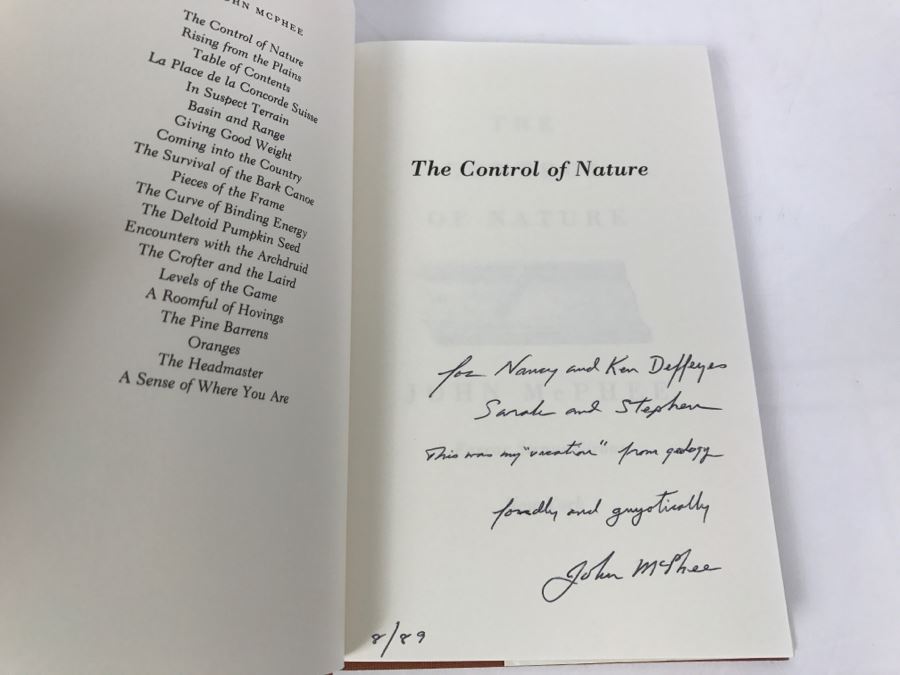 JOHN MCPHEE
The Control of Nature
Rising from the Plains
Table of Contents
La Place de la Concorde Suisse
In Suspect Terrain
Basin and Range
Giving Good Weight
Coming into the Country
The Survival of the Bark Canoe
Pieces of the Frame
The Curve of Binding Energy
The Deltoid Pumpkin Seed
Encounters with the Archdruid
The Crofter and the Laird
Levels of the Game
A Roomful of Hovings
The Pine Barrens
Oranges
The Headmaster
A Sense of Where You Are
THE
The Control of Nature
OF NATURE
for Nancy and Ken Deffeyes
JOHN McPHEE
Sarah and Stephen
This was my "vacation" from geology
fondly and guyotically
John McPhee
8/89